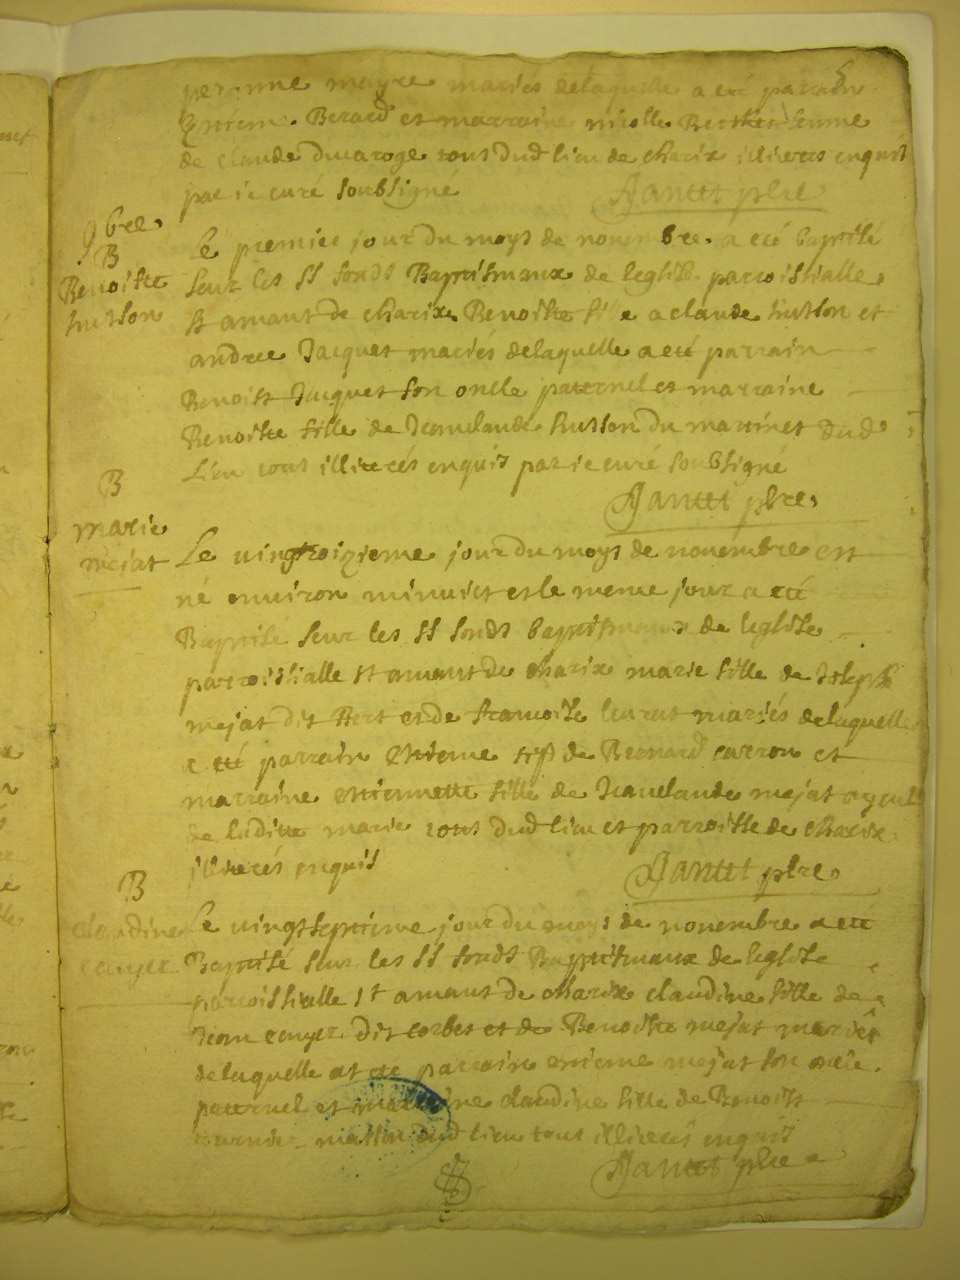 peronne mayre mariés delaquelle a eté parrain
Estiene Berard et marraine nicolle femme
de claude ducaroge tous dud lieu de charix illiterés enquis
par ie curé soubsigné
Jantet pbre
9bre
B
Benoiste
husson
Le premier jour du moys de novembre a eté baptisé
seur les SS fonds Baptismaux de leglise parroissialle
St amant de charix Benoiste fille a claude husson et
andree Jacquet mariés delaquelle a eté parrain
Benoist Jacquet son oncle paternel et marraine
Benoiste fille de Jeanclaude husson du martinet dud
Lieu tous illiterés enquis par ie curé soubsigné
Jantet pbre
B
marie
mejat
Le vingtroizieme jour du moys de novembre est
né environ minuict et le meme jour a eté
Baptisé seur les SS fonds baptismaux de leglise
parroissialle St amant de charix marie fille de Joseph
mejat dit et de francoise mariés delaquelle
a eté parrain Estiene fils de Bernard carron et
marraine estiennette fille de Jeanclaude mejat
de laditte marie tous dud lieu et parroisse de charix
illiterés enquis
Jantet pbre
B
claudine
Le vingtseptieme jour du moys de novembre a eté
Baptisé seur les SS fonds Baptismaux de leglise
parroissialle St amant de charix claudine fille de
Jean dit et de Benoiste mejat mariés
delaquelle at eté parrain estiene mejat son oncle
paternel et marraine claudine fille de Benoist
dud lieu tous illiterés enquis
Jantet pbre